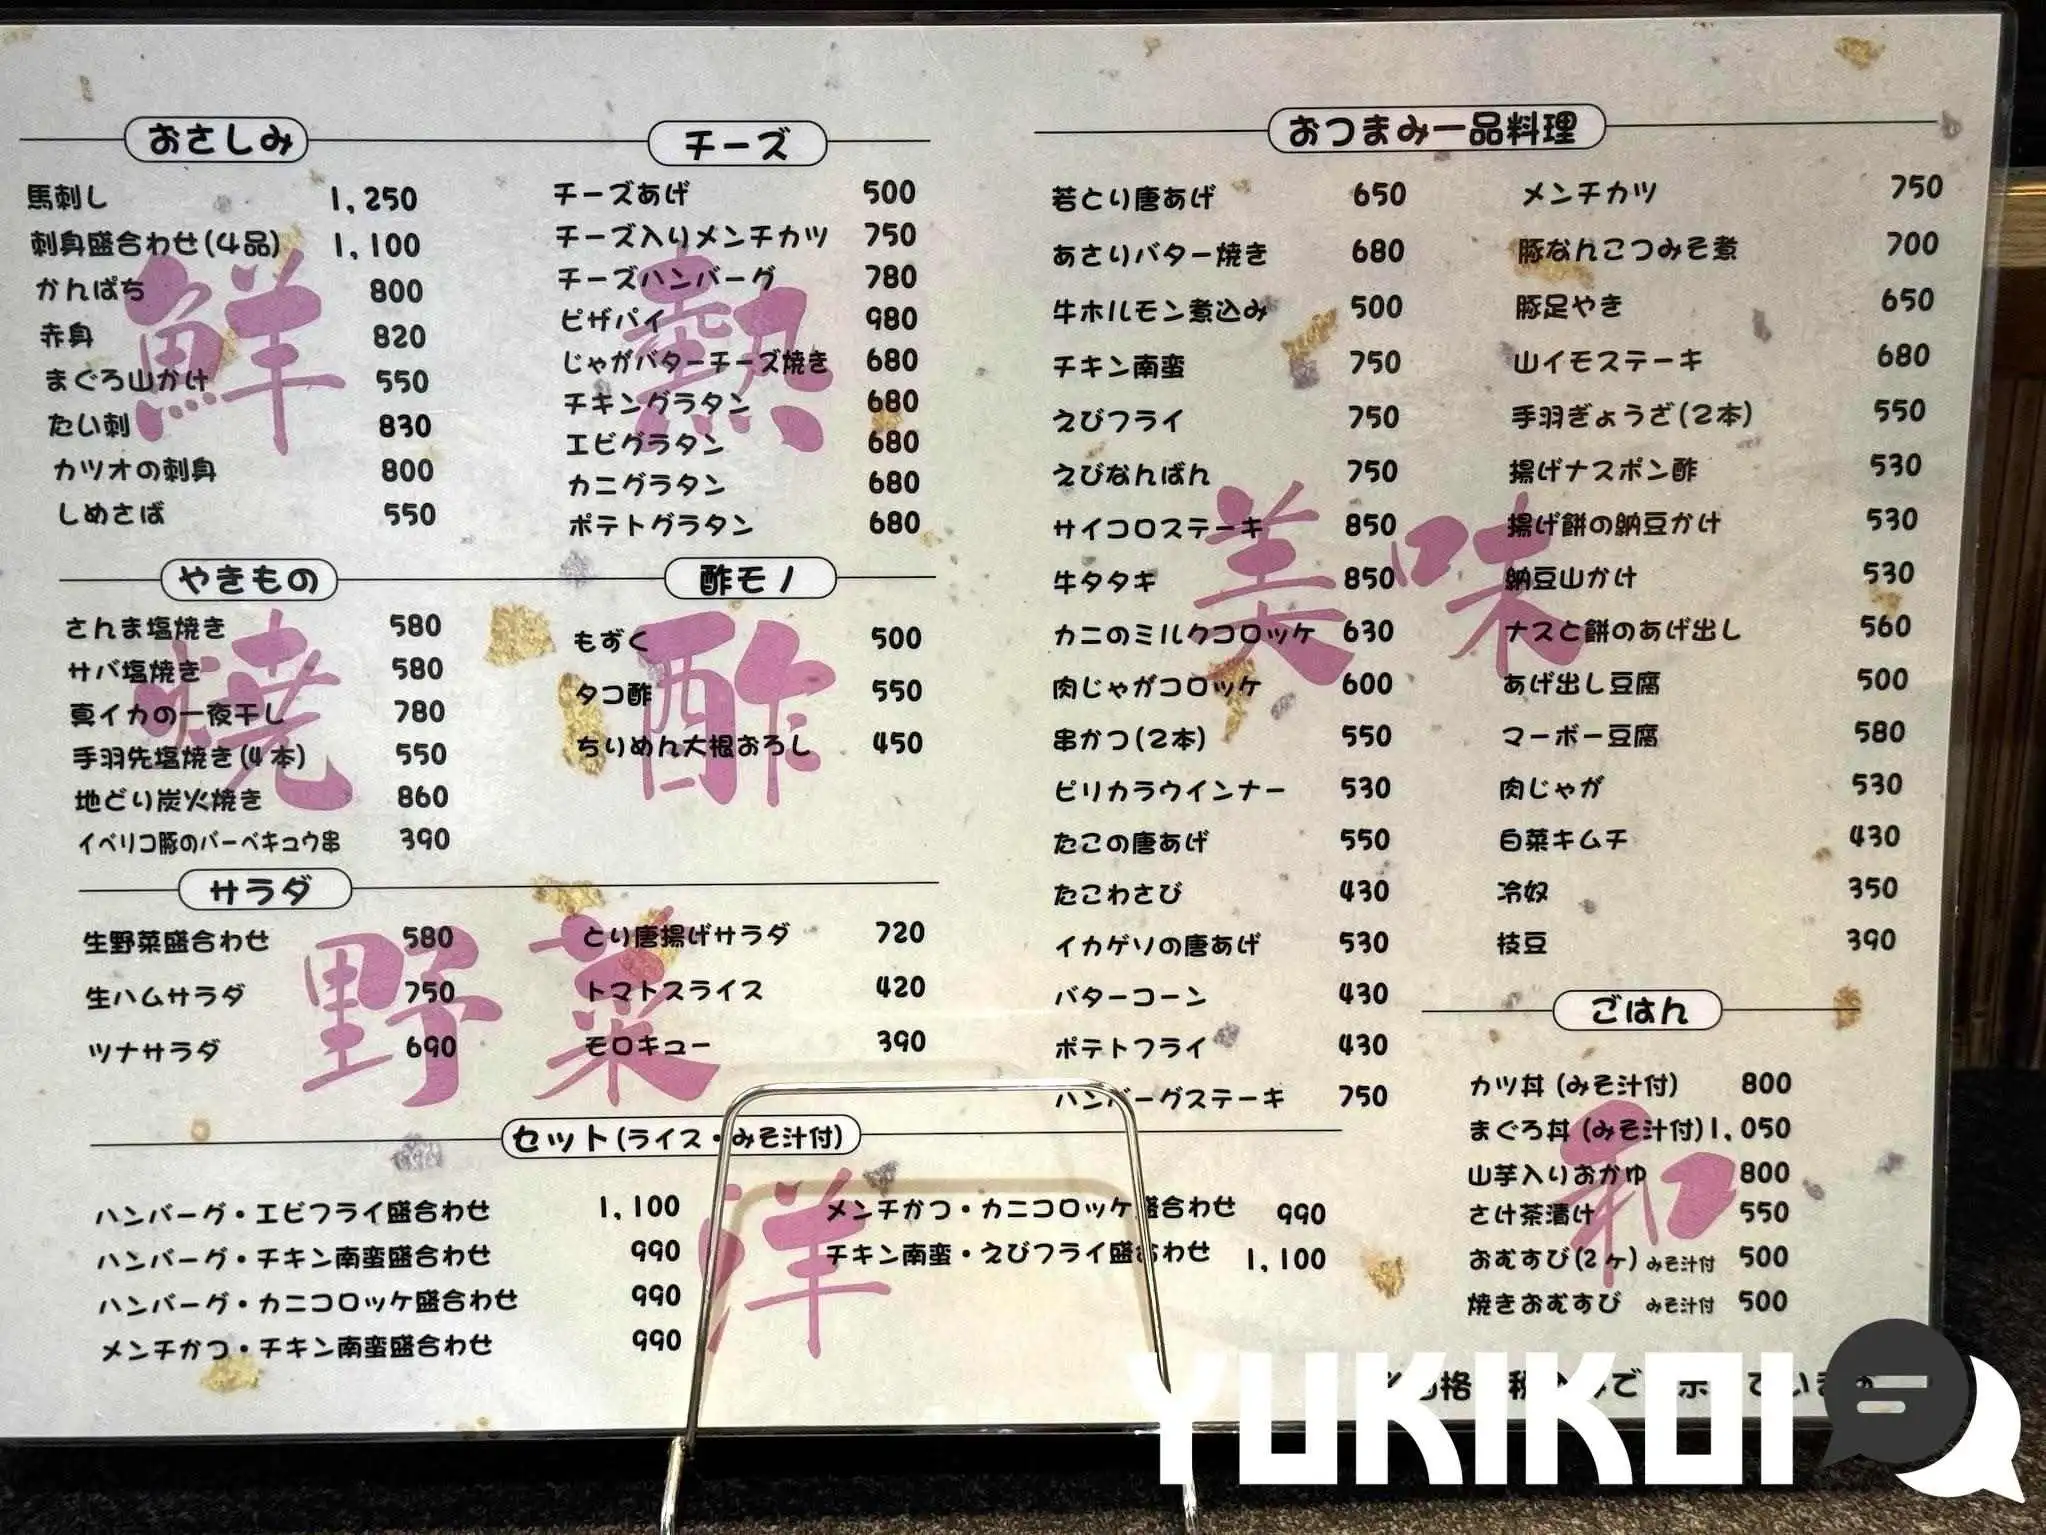 おさしみ
馬刺し 1,250
刺身盛合わせ(4品) 1,100
かんぱち 800
赤身 820
まぐろ山かけ 550
たい刺 830
カツオの刺身 800
しめさば 550
鮮
やきもの
さんま塩焼き 580
サバ塩焼き 580
真イカの一夜干し 780
手羽先塩焼き(4本) 550
地どり炭火焼き 860
イベリコ豚のバーベキュウ串 390
焼
チーズ
チーズあげ 500
チーズ入りメンチカツ 750
チーズハンバーグ 780
ピザパイ 980
じゃがバターチーズ焼き 680
チキングラタン 680
エビグラタン 680
カニグラタン 680
ポテトグラタン 680
熱
酢モノ
もずく 500
タコ酢 550
ちりめん大根おろし 450
酢
サラダ
生野菜盛合わせ 580
生ハムサラダ 750
ツナサラダ 690
とり唐揚げサラダ 720
トマトスライス 420
モロキュー 390
野菜
セット(ライス・みそ汁付)
ハンバーグ・エビフライ盛合わせ 1,100
ハンバーグ・チキン南蛮盛合わせ 990
ハンバーグ・カニコロッケ盛合わせ 990
メンチかつ・チキン南蛮盛合わせ 990
メンチかつ・カニコロッケ盛合わせ 990
チキン南蛮・えびフライ盛合わせ 1,100
洋
おつまみ一品料理
若とり唐あげ 650
あさりバター焼き 680
牛ホルモン煮込み 500
チキン南蛮 750
えびフライ 750
えびなんばん 750
サイコロステーキ 850
牛タタキ 850
カニのミルクコロッケ 630
肉じゃがコロッケ 600
串かつ(2本) 550
ピリカラウインナー 530
たこの唐あげ 550
たこわさび 430
イカゲソの唐あげ 530
バターコーン 430
ポテトフライ 430
ハンバーグステーキ 750
メンチカツ 750
豚なんこつみそ煮 700
豚足やき 650
山イモステーキ 680
手羽ぎょうざ(2本) 550
揚げナスポン酢 530
揚げ餅の納豆かけ 530
納豆山かけ 530
ナスと餅のあげ出し 560
あげ出し豆腐 500
マーボー豆腐 580
肉じゃが 530
白菜キムチ 430
冷奴 350
枝豆 390
美味
ごはん
カツ丼(みそ汁付) 800
まぐろ丼(みそ汁付) 1,050
山芋入りおかゆ 800
さけ茶漬け 550
おむすび(2ヶ)みそ汁付 500
焼きおむすび みそ汁付 500
和
YUKIKOI